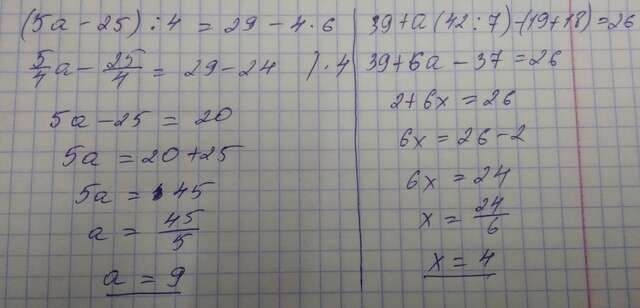 (5a-25):4 = 29-4·6
5/4a - 25/4 = 29-24 /·4
5a-25 = 20
5a = 20+25
5a = 45
a = 45/5
a = 9
39+a(42:7)-(19+18)=26
39+6a-37=26
2+6x=26
6x=26-2
6x=24
x=24/6
x=4